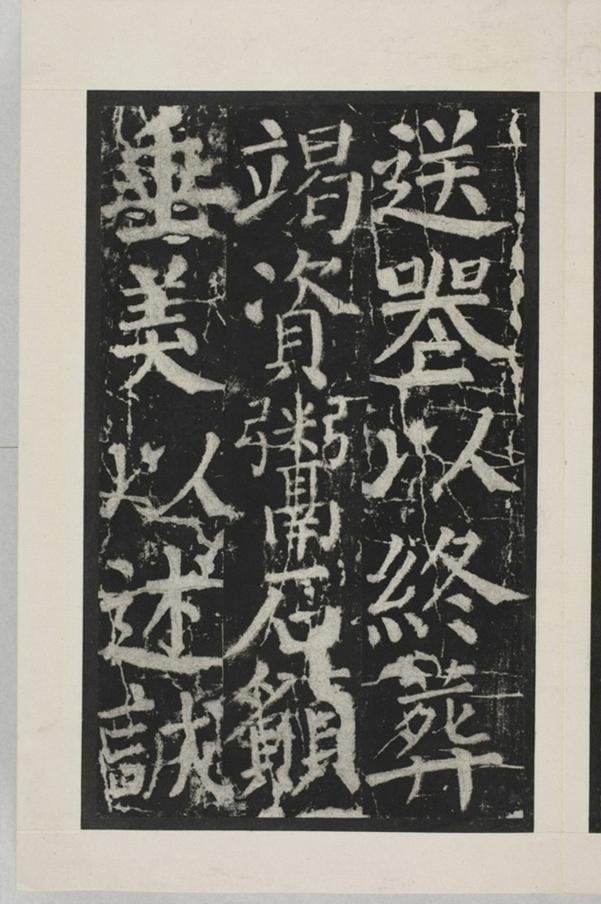 送喪以終葬
竭資鬻石願
垂美以述誠